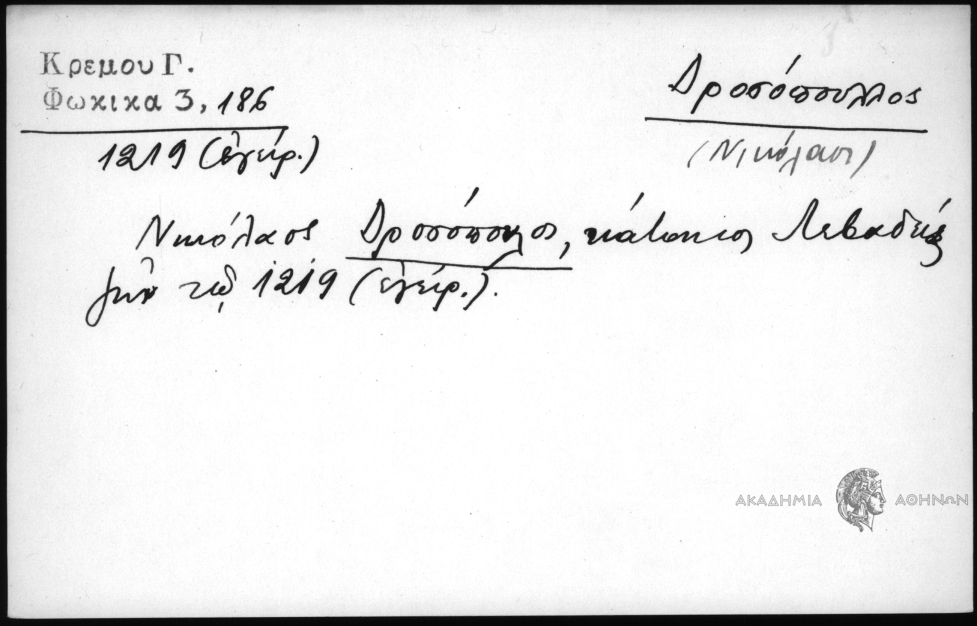 Κρεμου Γ.
Φωκικα 3, 186
1219 (ἐγείρ.)
Δροσόπουλλος
(Νικόλαος)
Νικόλαος Δροσόπουλος, κάτοικος Λεβαδείας
τῷ 1219 (ἐγείρ.).
ΑΚΑΔΗΜΙΑ ΑΘΗΝΩΝ